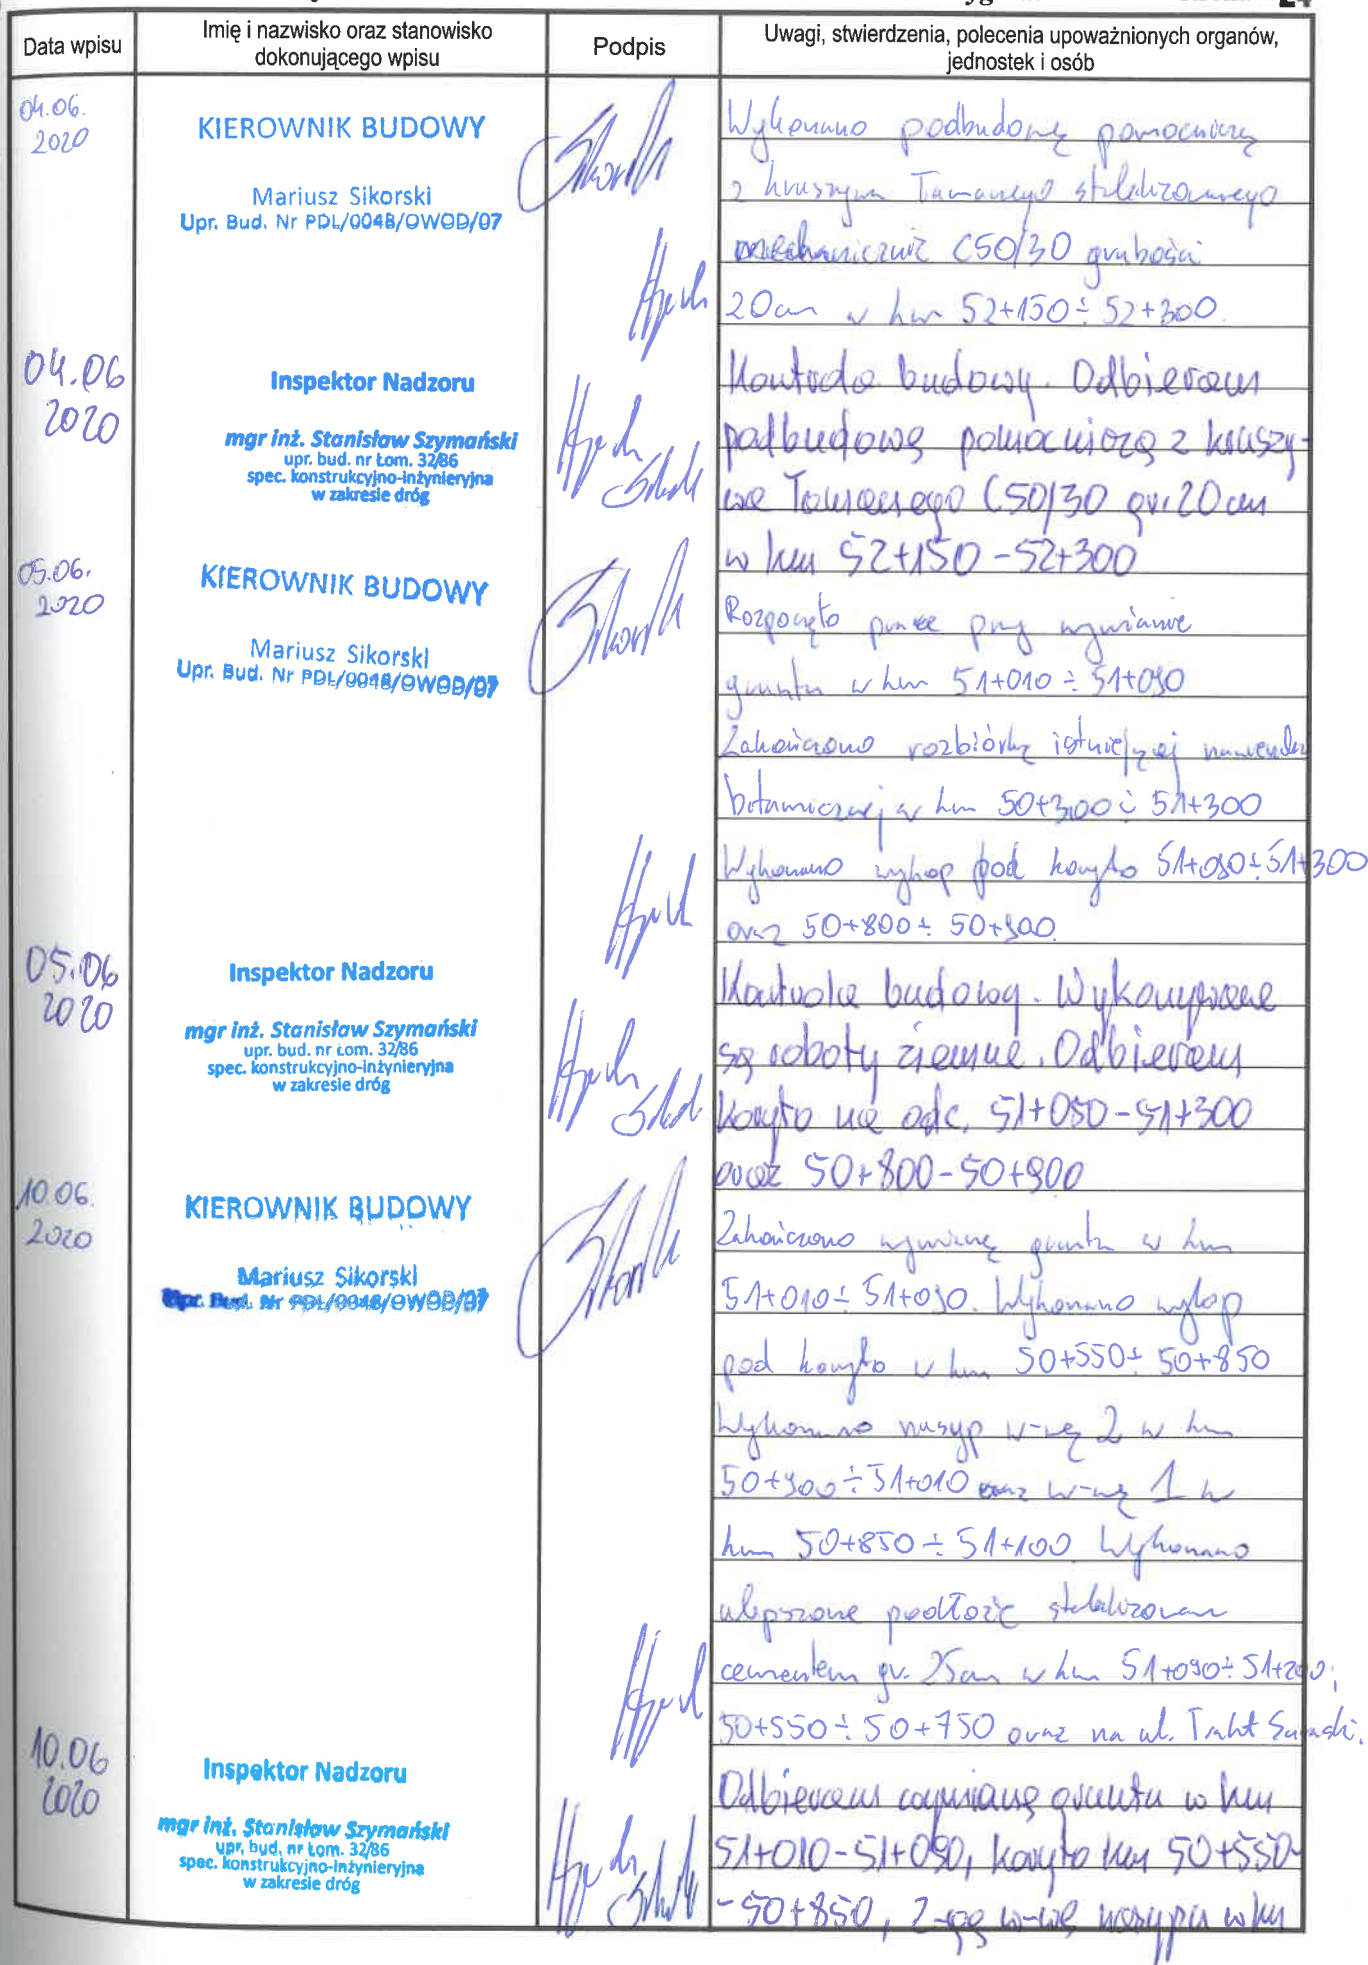 24
Data wpisu
Imię i nazwisko oraz stanowisko
dokonującego wpisu
Podpis
Uwagi, stwierdzenia, polecenia upoważnionych organów,
jednostek i osób
04.06.
2020
KIEROWNIK BUDOWY
Mariusz Sikorski
Upr. Bud. Nr PDL/0048/OWOD/07
Wykonano podbudowę pomocniczą
z kruszywa łamanego stabilizowanego
mechanicznie C50/30 grubości
20cm w km 52+150 ÷ 52+300.
04.06
2020
Inspektor Nadzoru
mgr inż. Stanisław Szymański
upr. bud. nr Łom. 32/86
spec. konstrukcyjno-inżynieryjna
w zakresie dróg
Kontrola budowy. Odbieram
podbudowę pomocniczą z kruszy-
wa łamanego C50/30 gr. 20 cm
w km 52+150 - 52+300
05.06.
2020
KIEROWNIK BUDOWY
Mariusz Sikorski
Upr. Bud. Nr PDL/0048/OWOD/07
Rozpoczęto prace przy wymianie
gruntu w km 51+010 ÷ 51+090
Zakończono rozbiórkę istniejącej nawierzchni
bitumicznej w km 50+300 ÷ 51+300
Wykonano wykop pod koryto 51+090 ÷ 51+300
oraz 50+800 ÷ 50+900
05.06
2020
Inspektor Nadzoru
mgr inż. Stanisław Szymański
upr. bud. nr Łom. 32/86
spec. konstrukcyjno-inżynieryjna
w zakresie dróg
Kontrola budowy. Wykonywane
są roboty ziemne. Odbieram
koryto na odc. 51+090 - 51+300
oraz 50+800 - 50+900
10.06.
2020
KIEROWNIK BUDOWY
Mariusz Sikorski
Upr. Bud. Nr PDL/0048/OWOD/07
Zakończono wymianę gruntu w km
51+010 ÷ 51+090. Wykonano wykop
pod koryto w km 50+550 ÷ 50+850
Wykonano nasyp w-wę 2 w km
50+900 ÷ 51+010 oraz w-wę 1 w
km 50+850 ÷ 51+100 Wykonano
ulepszone podłoże stabilizowane
cementem gr. 25cm w km 51+090 ÷ 51+200;
50+550 ÷ 50+750 oraz na ul. Trakt
10.06
2020
Inspektor Nadzoru
mgr inż. Stanisław Szymański
upr. bud. nr Łom. 32/86
spec. konstrukcyjno-inżynieryjna
w zakresie dróg
Odbieram wymianę gruntu w km
51+010 - 51+090, koryto km 50+550-
- 50+850, 2-gą w-wę nasypu w km